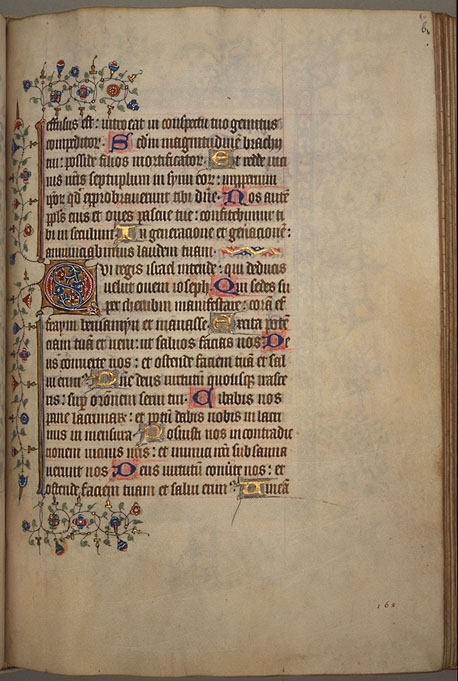 effusus est: introeat in conspectu tuo gemitus
compeditor. Scdm magnitudinē brachij
tui: posside filios mortificator. Et redde vici
nis nr̄is septuplum in sinu eor: improperium
ipor qd exprobraverunt tibi dn̄e. Nos autē
ppl̄s tuus et oves pascue tue: confitebimur ti
bi in seculum. In generacione et gen̄acionē:
annunciabimus laudem tuam.
Qui regis israel intende: qui deducis
velut ovem ioseph. Qui sedes su
per cherubin manifestare: corā ef
fraym beniamyn et manasse. Excita potē
ciam tuā et veni: ut salvos facias nos. De
us converte nos: et ostende faciem tuā et sal
vi erim Dn̄e deus virtutū quousq irasce
ris: sup or̄onem servi tui. Cibabis nos
pane lacrimar: et potū dabis nobis in lacri
mis in mensura. Posuisti nos in contradic
cionem vicinis nr̄is: et inimici nr̄i subsanna
verunt nos. Deus virtutū con̄vte nos: et
ostende faciem tuam et salvi erim Vineā
168